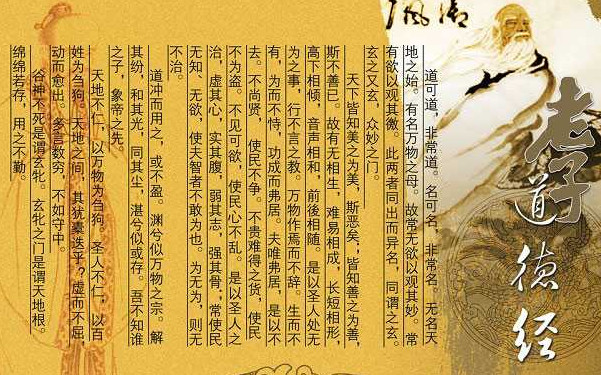 老子
道德经
道可道，非常道。名可名，非常名。无名天
地之始。有名万物之母。故常无欲以观其妙。常
有欲以观其徼。此两者同出而异名，同谓之玄。
玄之又玄，众妙之门。
天下皆知美之为美，斯恶矣，皆知善之为善，
斯不善已。故有无相生，难易相成，长短相形，
高下相倾，音声相和，前後相随。是以圣人处无
为之事，行不言之教。万物作焉而不辞。生而不
有，为而不恃，功成而弗居。夫唯弗居，是以不
去。不尚贤，使民不争。不贵难得之货，使民
不为盗。不见可欲，使民心不乱。是以圣人之
治，虚其心，实其腹，弱其志，强其骨；常使民
无知、无欲，使夫智者不敢为也。为无为，则无
不治。
道冲而用之，或不盈。渊兮似万物之宗。解
其纷，和其光，同其尘，湛兮似或存。吾不知谁
之子，象帝之先。
天地不仁，以万物为刍狗。圣人不仁，以百
姓为刍狗。天地之间，其犹橐迭乎？虚而不屈
动而愈出。多言数穷，不如守中。
谷神不死是谓玄牝。玄牝之门是谓天地根。
绵绵若存，用之不勤。